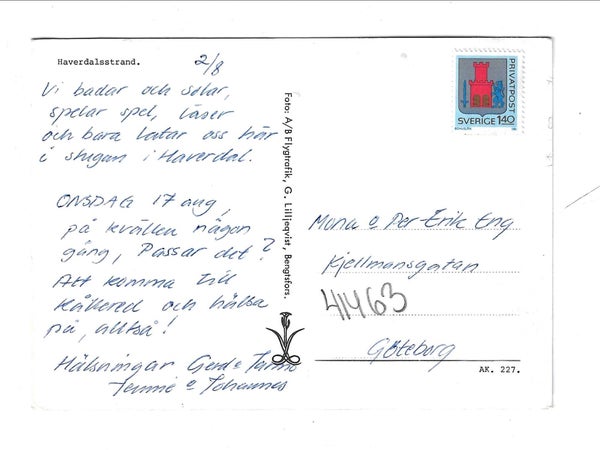 Haverdalsstrand.
2/8
Vi badar och solar,
spelar spel, läser
och bara latar oss här
i stugan i Haverdal.
ONSDAG 17 aug,
på kvällen någon
gång, Passar det?
Att komma till
Kållered och hälsa
på, alltså!
Hälsningar Gerd o Jarmo
Jennie o Johannes
Foto: A/B Flygtrafik, G. Lilljeqvist, Bengtsfors.
PRIVATPOST
SVERIGE 140
Mona o Per-Erik Enq
Kjellmansgatan
41463
Göteborg
AK. 227.